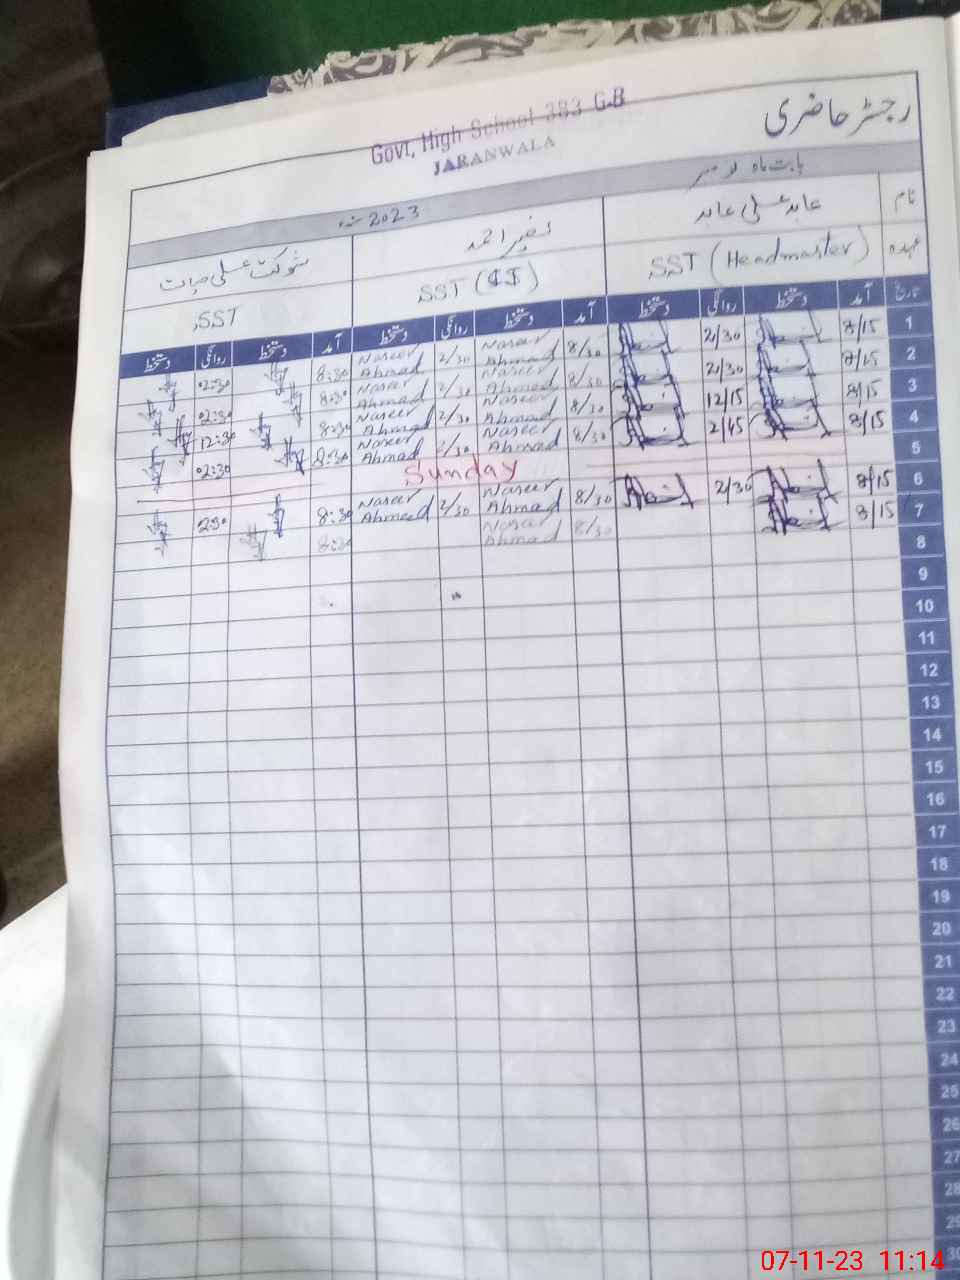 Govt, High School 383 G.B
JARANWALA
رجسٹر حاضری
بابت ماہ نومبر 2023ء
نام عابد علی عابد نصیر احمد شوکت علی حیات
عہدہ SST (Headmaster) SST SST
تاریخ آمد دستخط روانگی دستخط آمد دستخط روانگی دستخط آمد دستخط روانگی دستخط
1 8/15 2/30 8/30 Naseer Ahmad 2/30 Naseer Ahmad 8:30 02:30
2 8/15 2/30 8/30 Naseer Ahmad 2/30 Naseer Ahmad 8:30 02:30
3 8/15 12/15 8/30 Naseer Ahmad 2/30 Naseer Ahmad 8:30 12:30
4 8/15 2/45 8/30 Naseer Ahmad 2/30 Naseer Ahmad 8:30 02:30
5 Sunday
6 8/15 2/30 8/30 Naseer Ahmad 2/30 Naseer Ahmeed 8:30 2:30
7 8/15 8/30 Naseer Ahmad 8:30
8
9
10
11
12
13
14
15
16
17
18
19
20
21
22
23
24
25
26
27
28
29
30
07-11-23 11:14